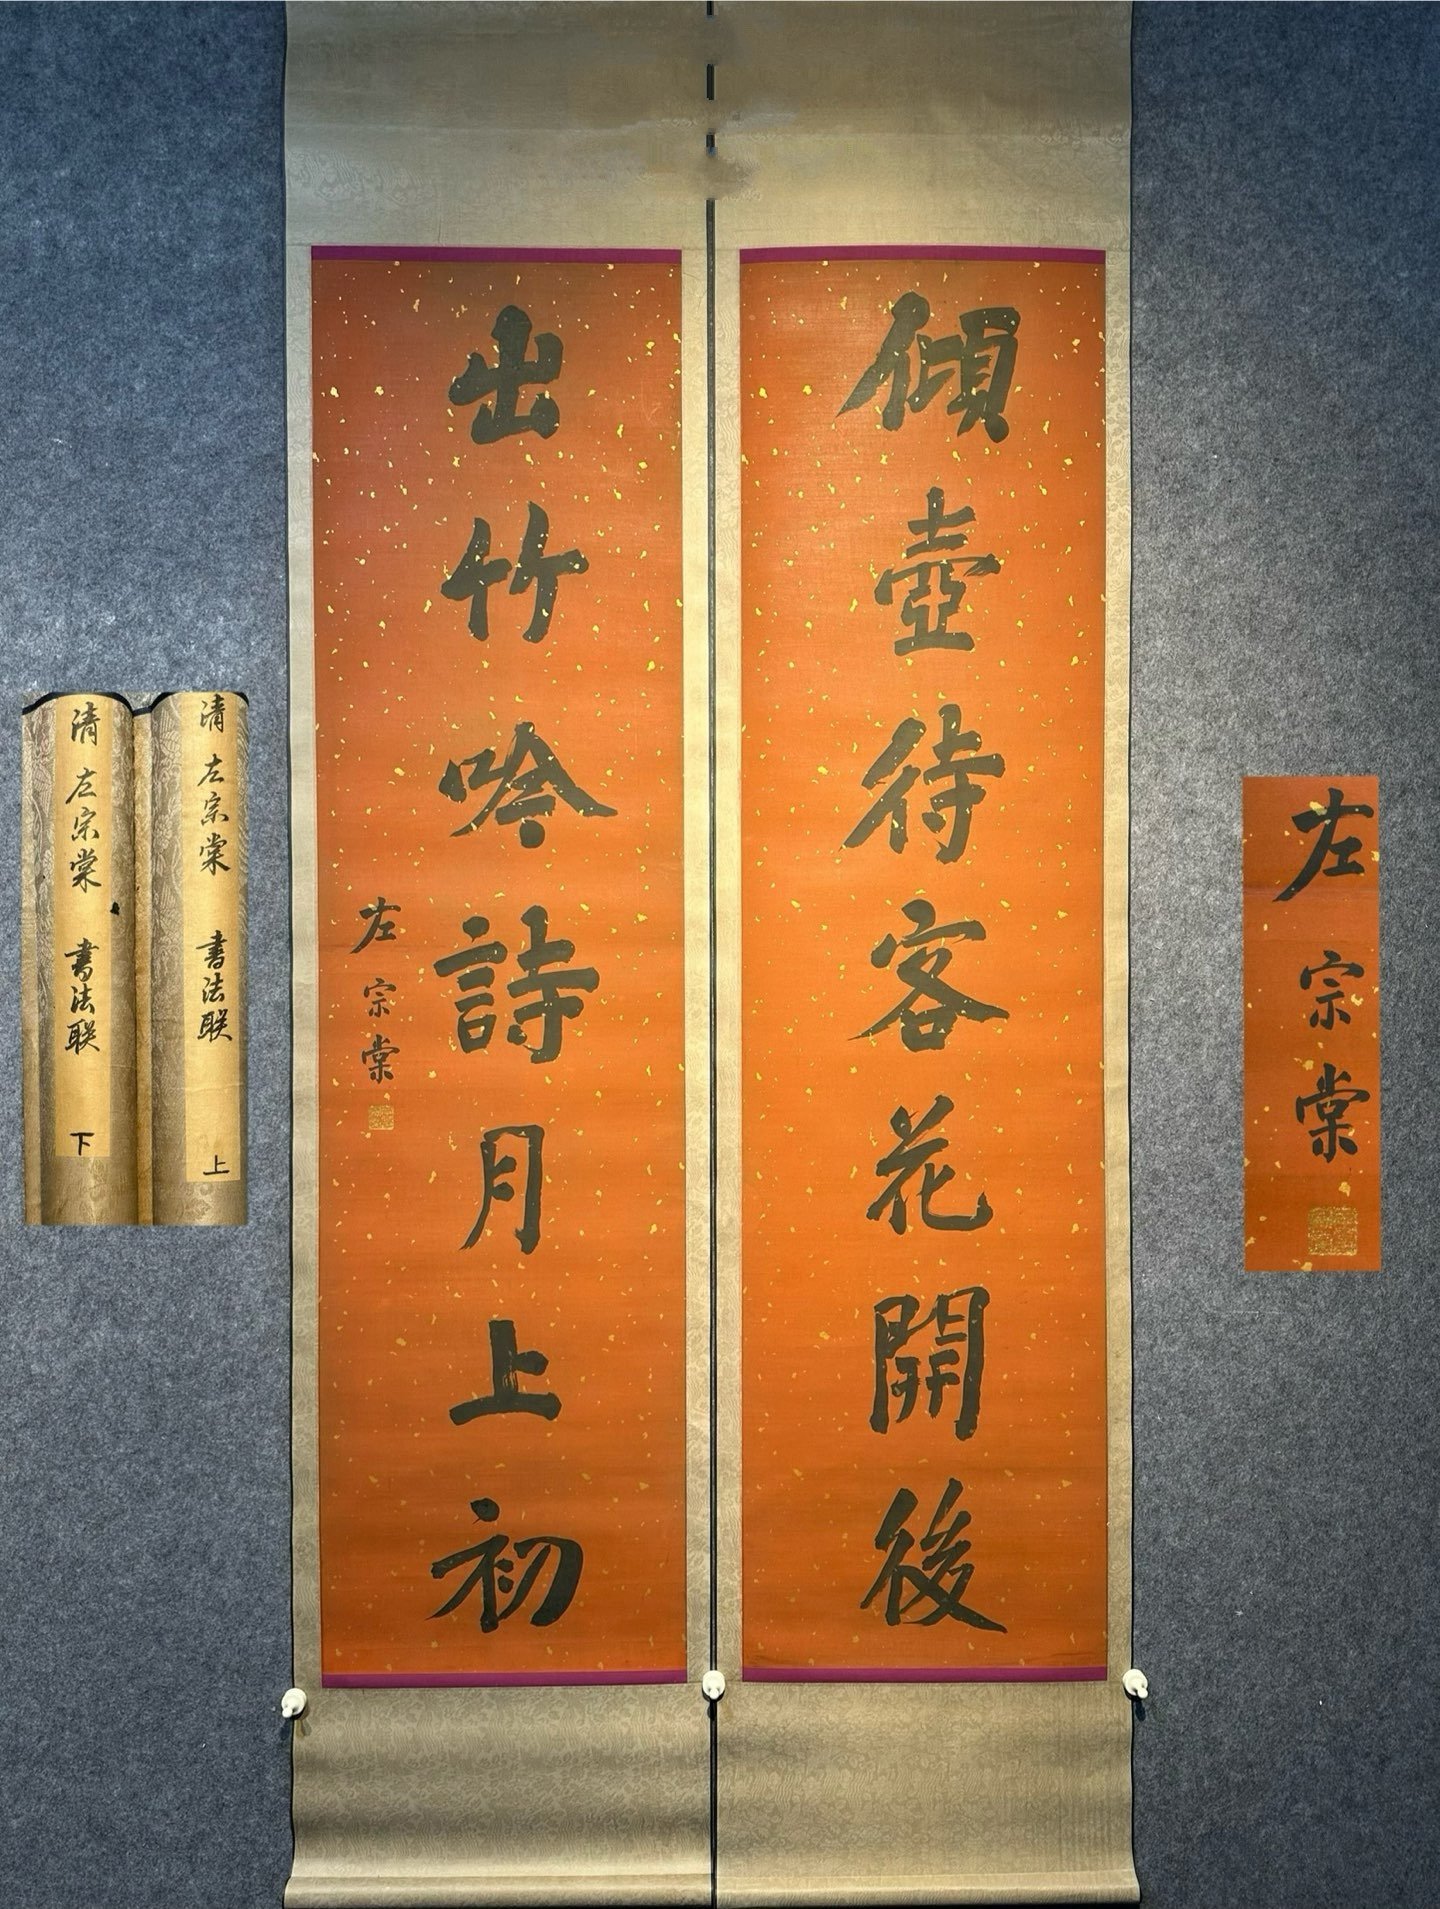 傾壺待客花開後
出竹吟詩月上初
左宗棠
清 左宗棠 書法联 上
清 左宗棠 書法联 下
左宗棠